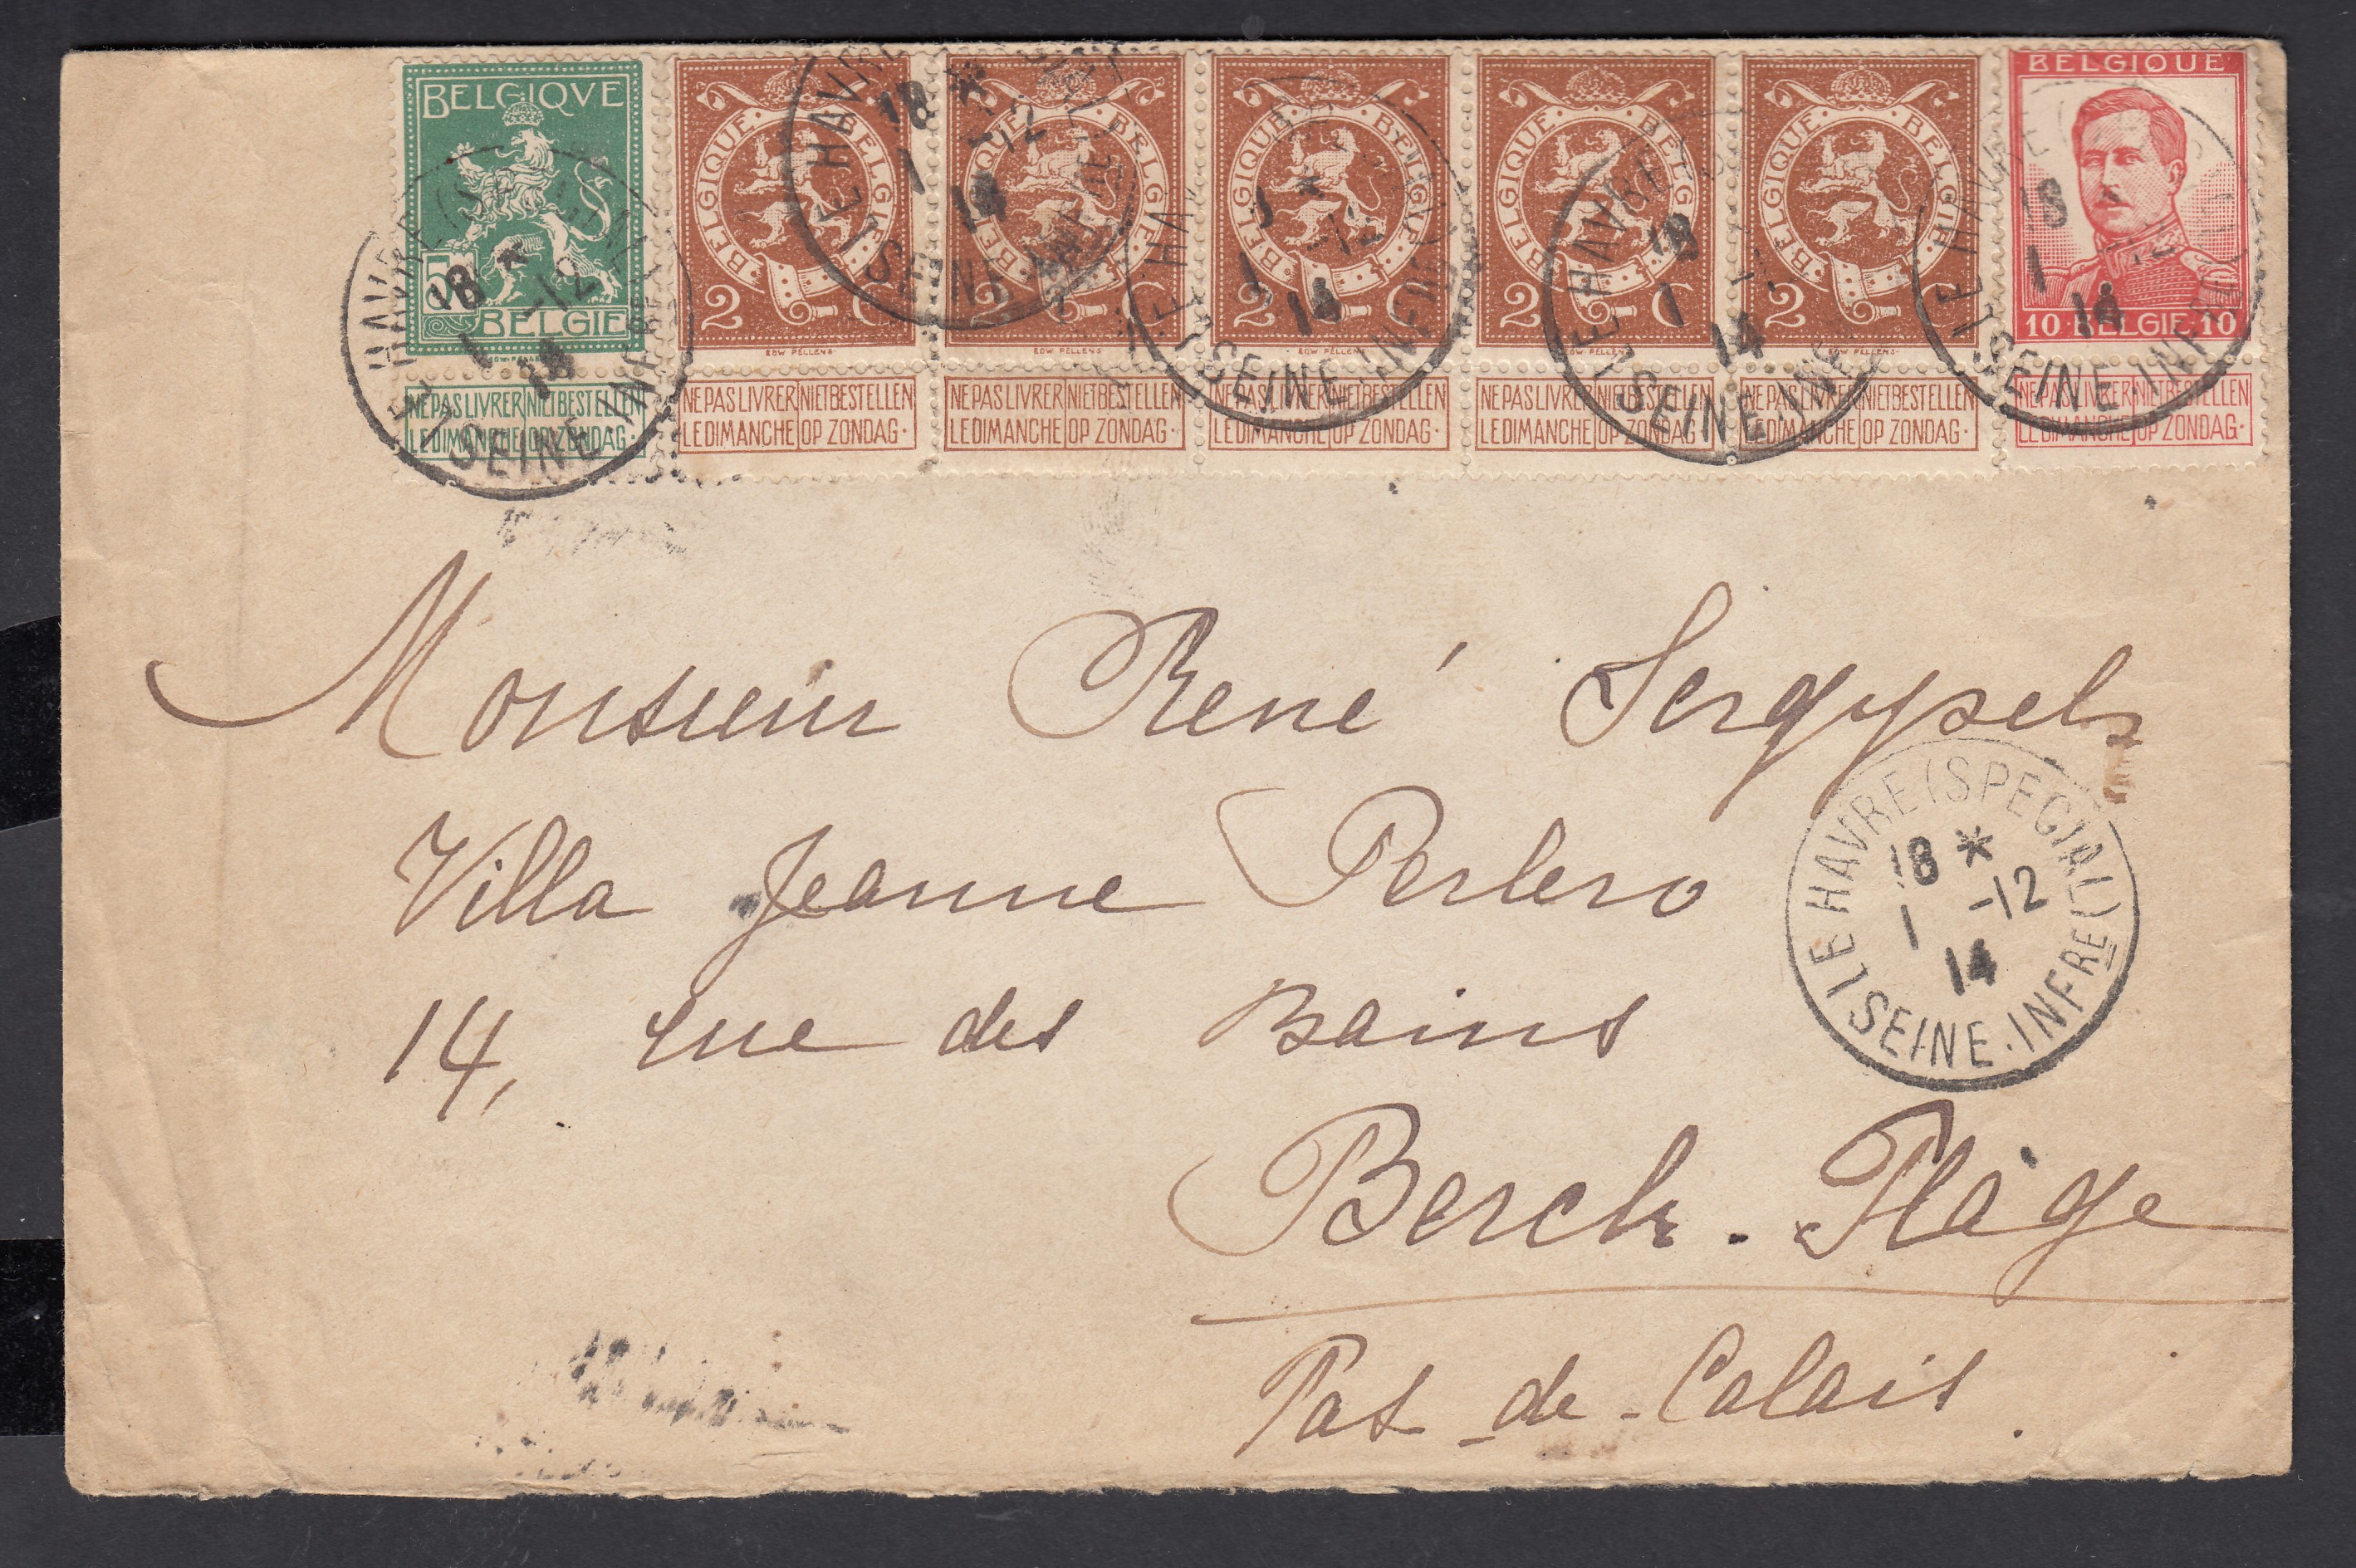 BELGIQVE
5
BELGIE
NE PAS LIVRER NIET BESTELLEN
LE DIMANCHE OP ZONDAG.
BELGIQUE · BELGIE
2 C
EDW PELLENS
NE PAS LIVRER NIET BESTELLEN
LE DIMANCHE OP ZONDAG.
BELGIQUE · BELGIE
2 C
EDW PELLENS
NE PAS LIVRER NIET BESTELLEN
LE DIMANCHE OP ZONDAG.
BELGIQUE · BELGIE
2 C
EDW PELLENS
NE PAS LIVRER NIET BESTELLEN
LE DIMANCHE OP ZONDAG.
BELGIQUE · BELGIE
2 C
NE PAS LIVRER NIET BESTELLEN
LE DIMANCHE OP ZONDAG.
BELGIQUE · BELGIE
2 C
EDW PELLENS
NE PAS LIVRER NIET BESTELLEN
LE DIMANCHE OP ZONDAG.
BELGIQUE
10 · BELGIE · 10
NE PAS LIVRER NIET BESTELLEN
LE DIMANCHE OP ZONDAG.
Monsieur René Sergysels
Villa Jeanne
14, rue des Bains
Berck. Plage
Pas-de-Calais.
LE HAVRE (SPECIAL)
18 *
1 -12
14
(SEINE. INFRE)